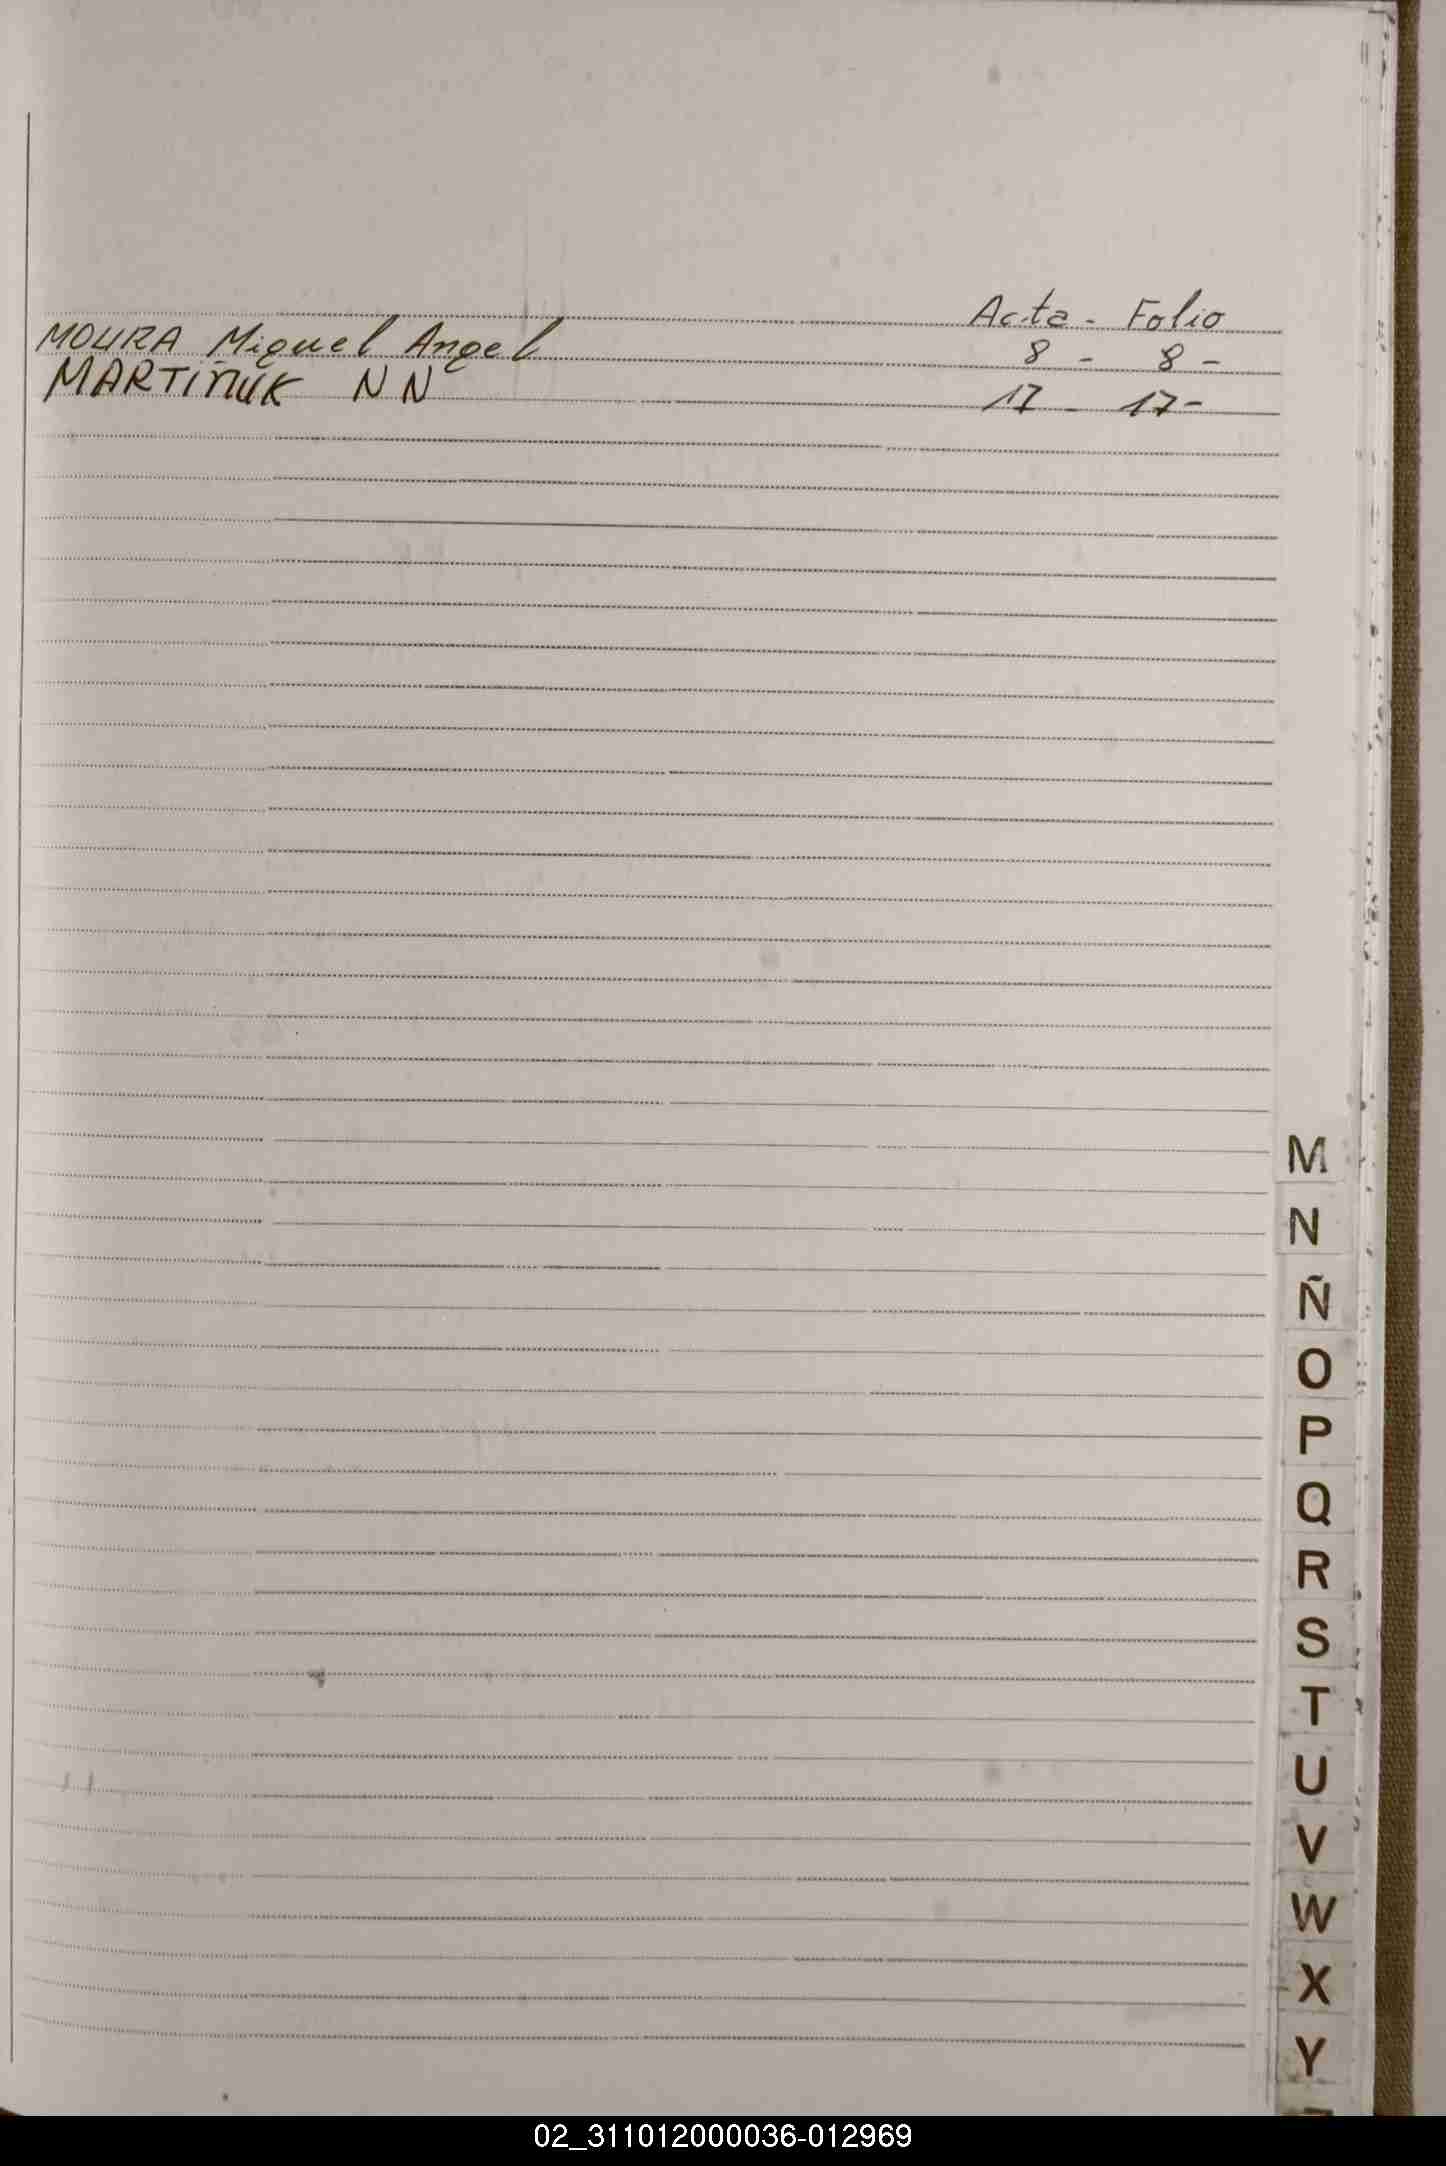 Acta - Folio
MOURA Miguel Angel 8 - 8 -
MARTIÑUK N N 17 - 17 -
M
N
Ñ
O
P
Q
R
S
T
U
V
W
X
Y
02_311012000036-012969